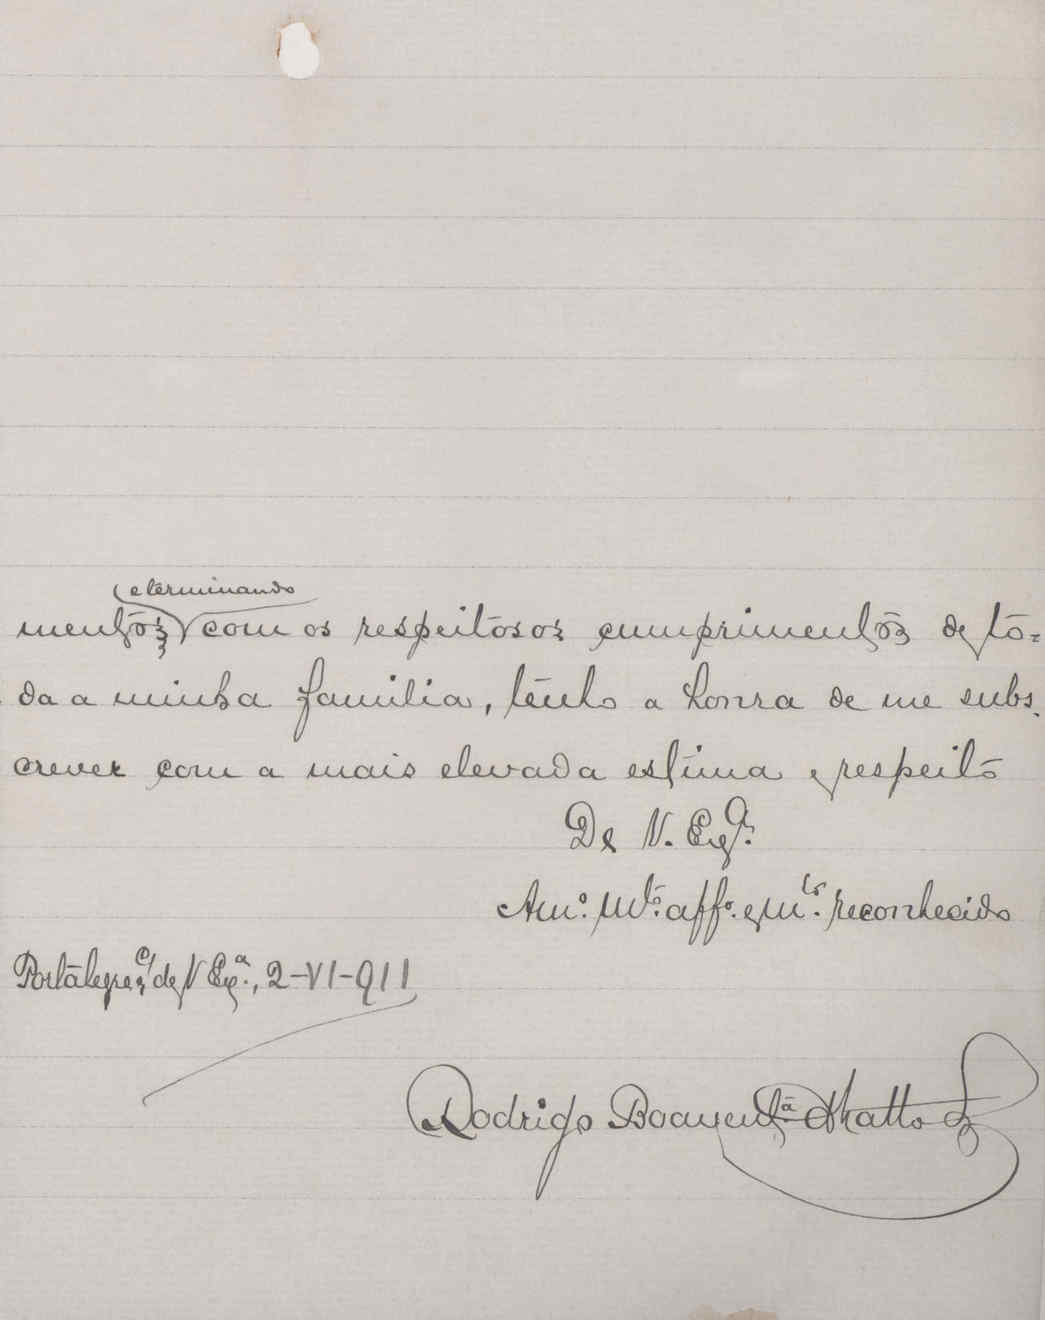 e terminando
mentos com os respeitosos cumprimentos de to=
da a minha familia, tenho a honra de me subs.
crever com a mais elevada estima e respeito
De V. Exª.
Amº. Mtº. affº. e mtº. reconhecido
Portalegre, de V Exª., 2-VI-911
Rodrigo Boaventª Mattos